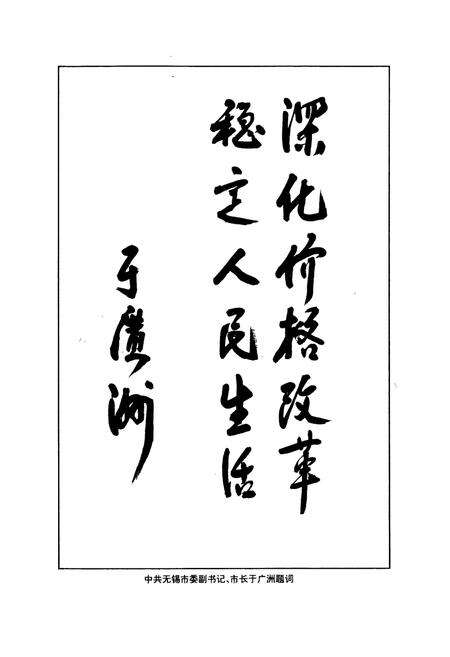 深化价格改革
稳定人民生活
于廣洲
中共无锡市委副书记、市长于广洲题词